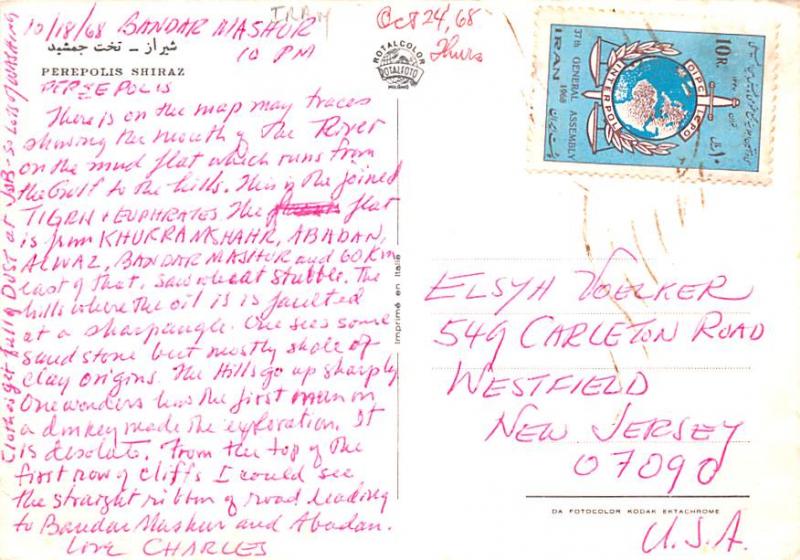 IRAN
10/18/68 BANDAR MASHUR
10 PM
شیراز – تخت جمشید
PEREPOLIS SHIRAZ
PERSEPOLIS
There is on the map may traces
showing the mouth of the River
on the mud flat which runs from
the Gulf to the hills. This is the joined
TIGRIS + EUPHRATES. The flat
is from KHURRAMSHAHR, ABADAN,
ALWAZ, BANDAR MASHUR and 60 Km
east of that. Saw wheat stubble. The
hills where the oil is is faulted
at a sharp angle. One sees some
sandstone but mostly shale of
clay origins. The Hills go up sharply.
One wonders how the first man on
a donkey made the exploration. It
is desolate. From the top of the
first row of cliffs I could see
the straight ribbon of road leading
to Bandar Mashur and Abadan.
Love CHARLES
Clothes get full of DUST at JOB - so lots of WASHING
Oct 24, 68
Thurs
ROTALCOLOR
ROTALFOTO
MILANO
Imprimé en Italie
10R
37th GENERAL ASSEMBLY
IRAN 1968
OIPC ICPO
INTERPOL
ELSYH VOELKER
549 CARLETON ROAD
WESTFIELD
NEW JERSEY
07090
DA FOTOCOLOR KODAK EKTACHROME
U.S.A.